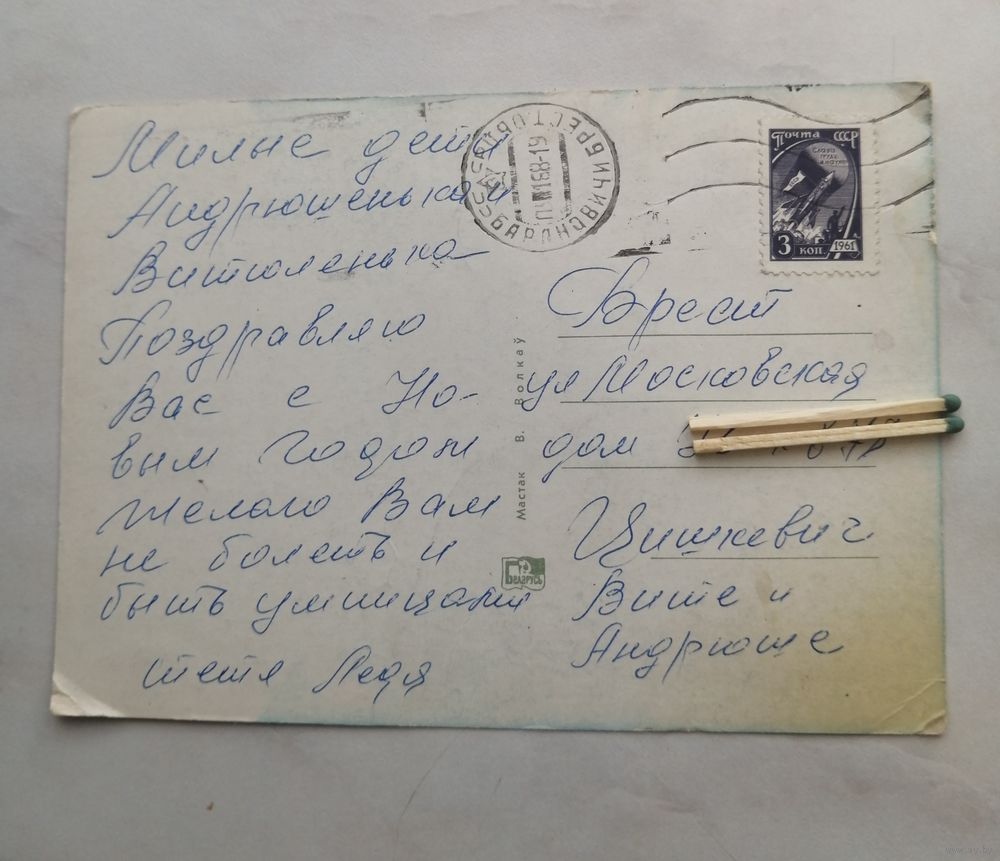 Милые дети
Андрюшенька и
Витюленька
Поздравляю
Вас с Но-
вым годом
желаю Вам
не болеть и
быть умницами
тетя Ледя
БАРАНОВИЧИ БРЕСТ.ОБЛ.
68-19
Почта СССР
СЛАВА
ТРУДУ
И НАУКЕ
3 КОП.
1961
Мастак В. Волкаў
БЕЛАРУСЬ
Брест
ул Московская
дом
Цишкевич
Вите и
Андрюше